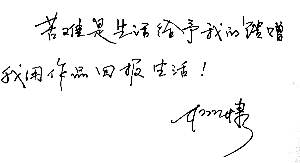 苦难是生活给予我的馈赠
我用作品回报生活！